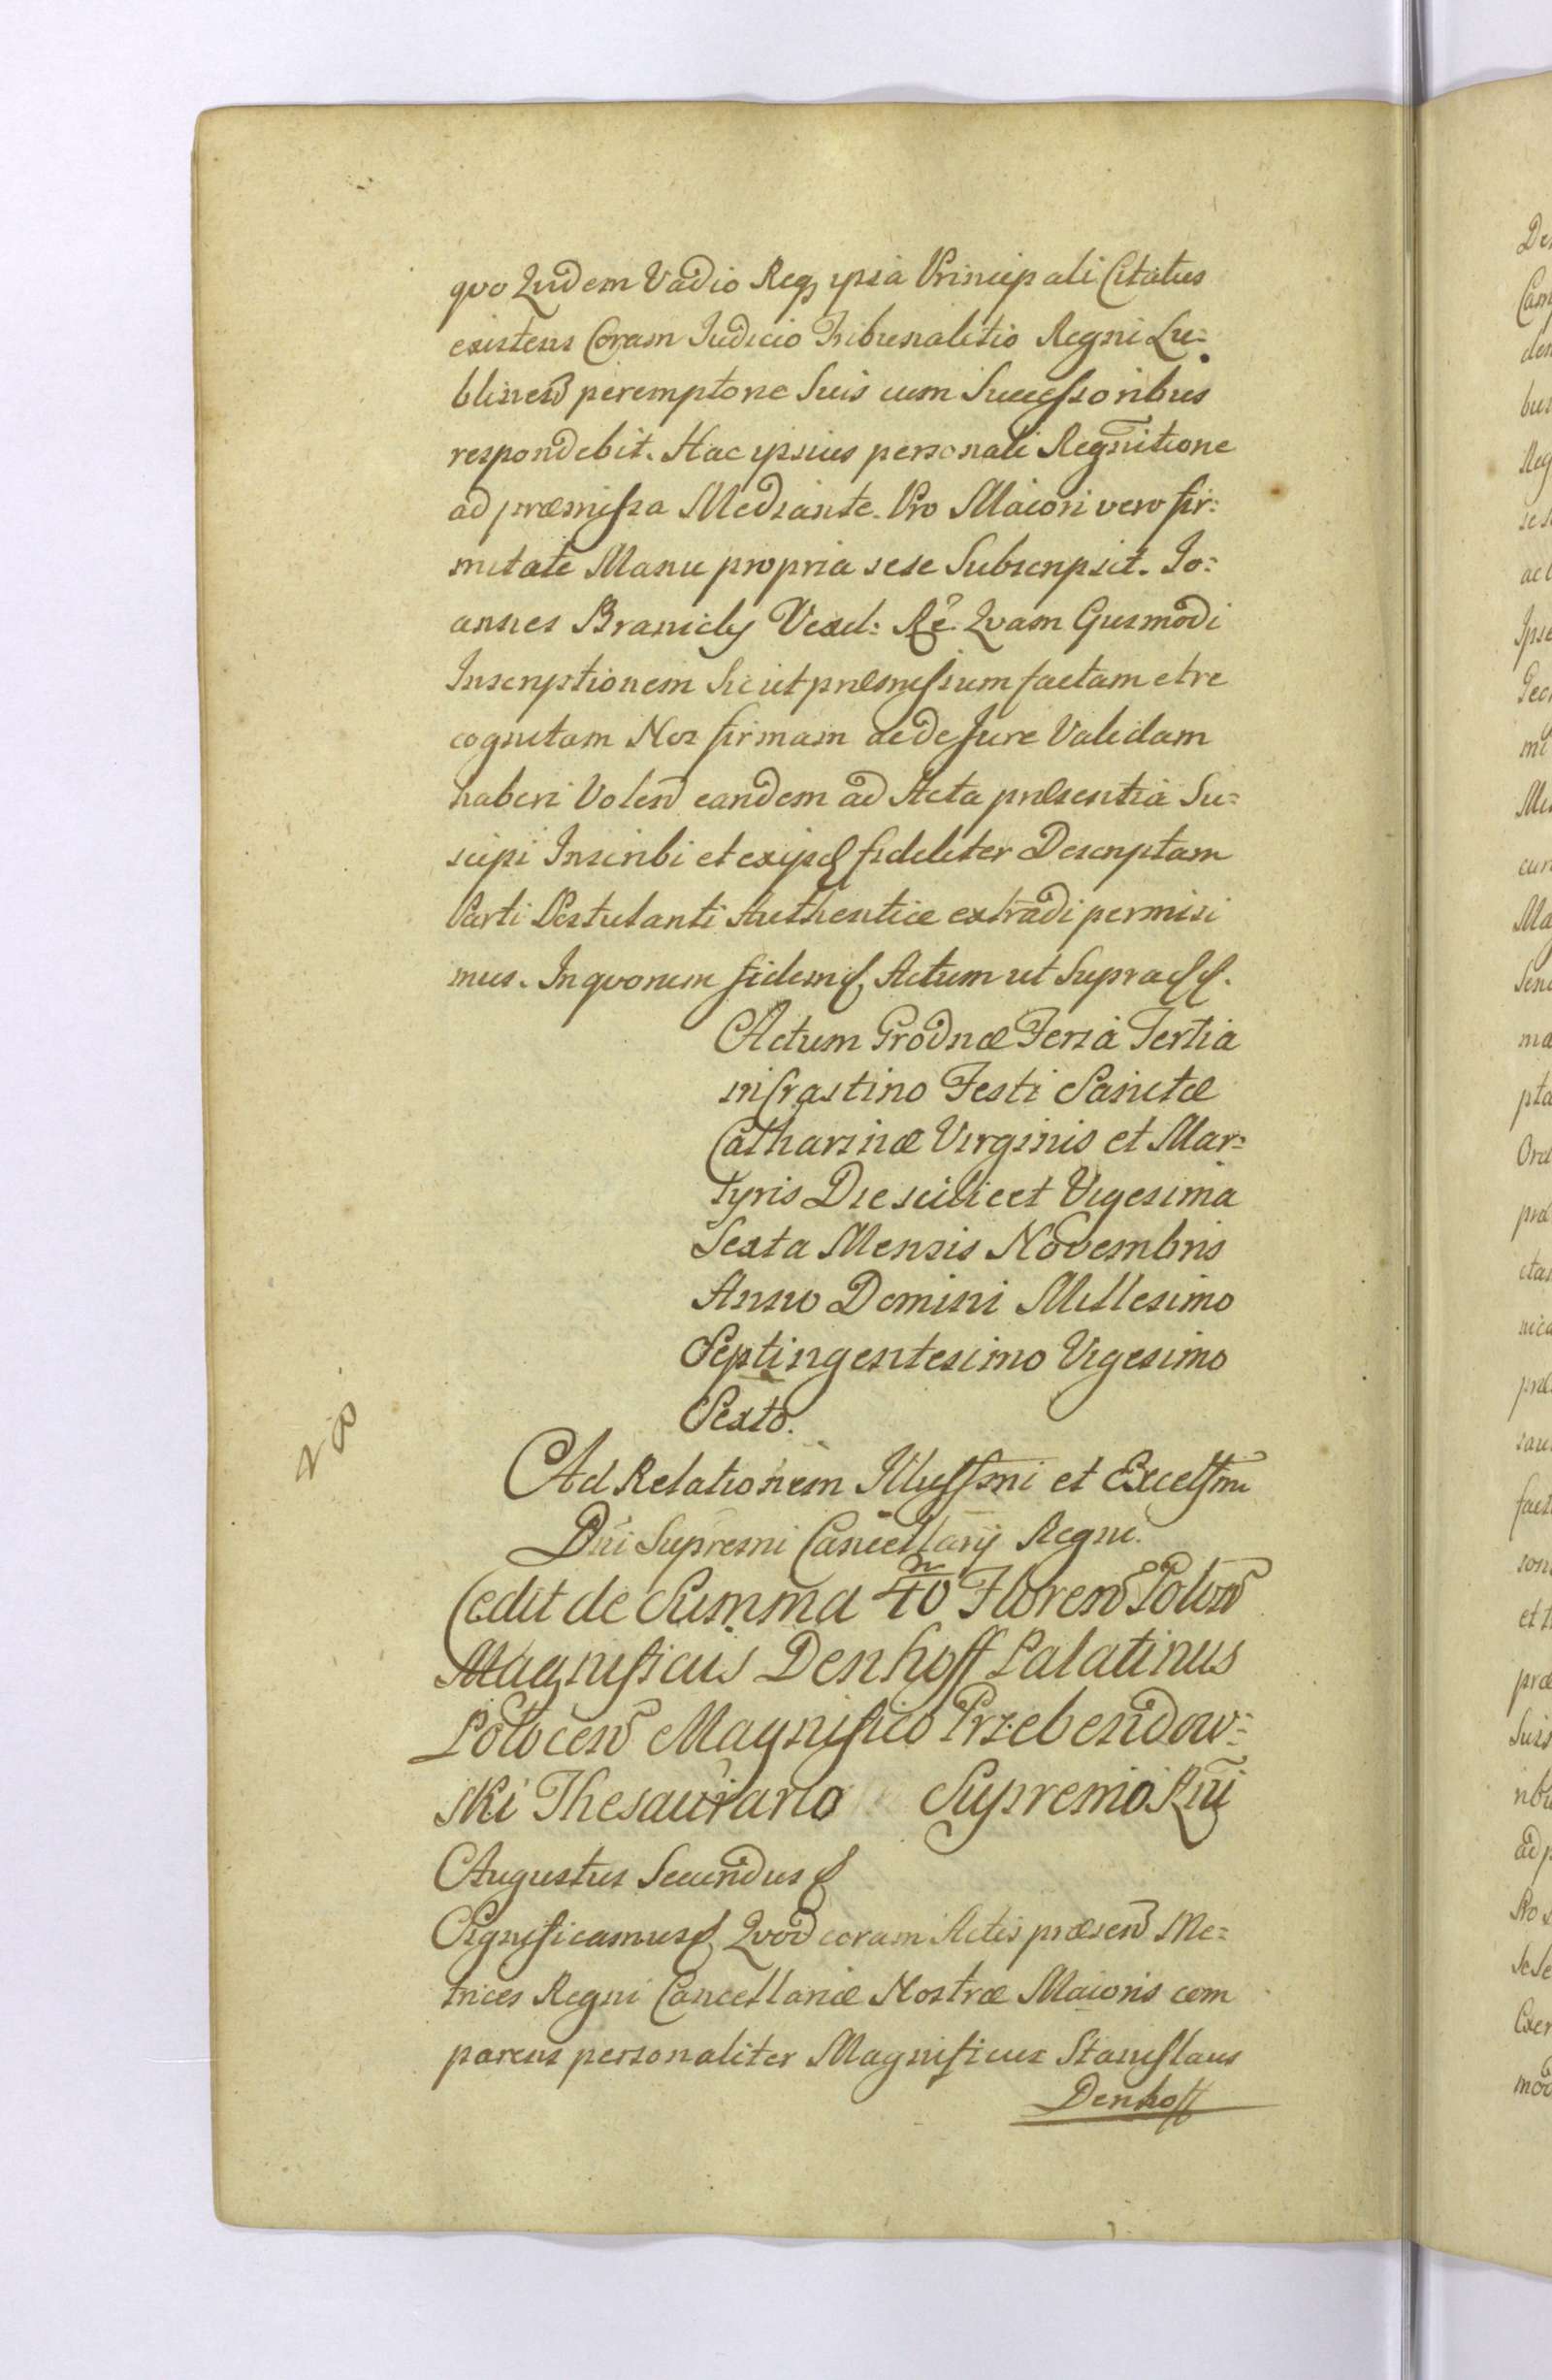 quo Quidem Vadio Reqz ipsa Principali Citatus
existens Coram Iudicio Tribunalitio Regni Lu=
blinen peremptorie Suis cum Successoribus
respondebit. Hac ipsius personali Regnitione
ad præmissa Mediante. Pro Maiori vero fir=
mitate Manu propria sese Subscripsit. Io=
annes Branicky Vexil: Quam Eiusmodi
Inscriptionem Sic ut præmissum factam et re
cognitam Nos firmam ac de Jure Validam
haberi Volen eandem ad Acta præsentia Su=
scipi Inscribi et exijsd fideliter Descriptam
Parti Postulanti Authentice extradi permisi
mus. In quorum fidem Actum ut Supra
Actum Grodnæ Feria Tertia
in Crastino Festi Sanctæ
Catharinæ Virginis et Mar=
tyris Die scilicet Vigesima
Sexta Mensis Novembris
Anno Domini Millesimo
Septingentesimo Vigesimo
Sexto.
Ad Relationem Illussmi et Excelssmi
Dni Supremi Cancellarij Regni.
Cedit de Summa 40 Floren Polon
Magnificus Denhoff Palatinus
Polocen Magnifico Przebendow=
ski Thesaurario Supremo Rni
Augustus Secundus
Significamus Quod coram Actis præsen Me=
trices Regni Cancellariæ Nostræ Maioris com
parens personaliter Magnificus Stanislaus
Denhoff